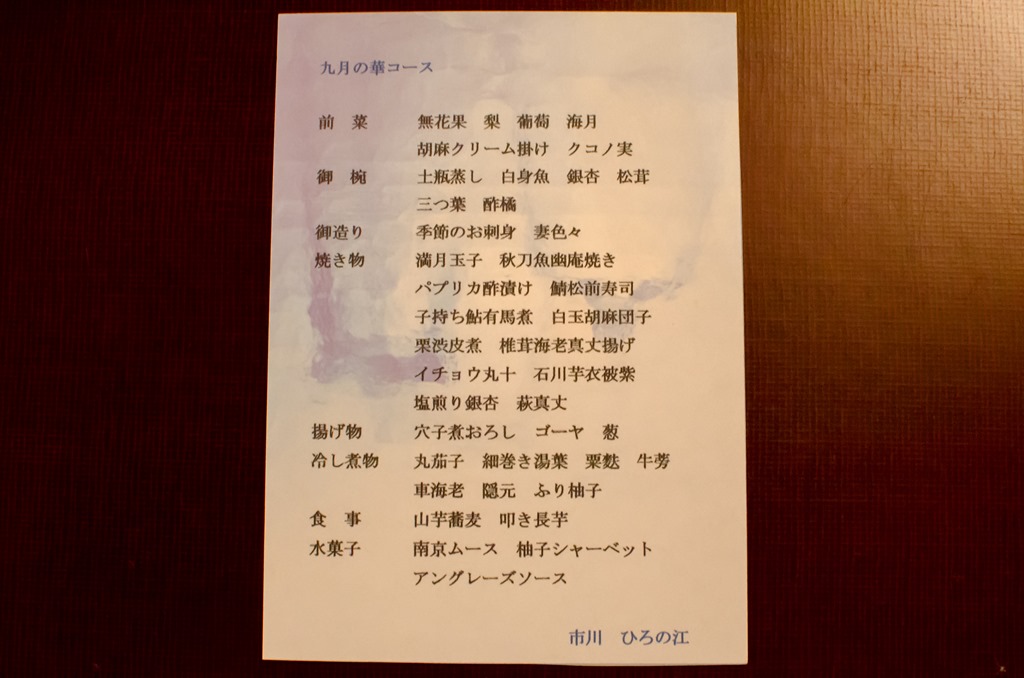 九月の華コース
前　菜　無花果　梨　葡萄　海月
胡麻クリーム掛け　クコノ実
御　椀　土瓶蒸し　白身魚　銀杏　松茸
三つ葉　酢橘
御造り　季節のお刺身　妻色々
焼き物　満月玉子　秋刀魚幽庵焼き
パプリカ酢漬け　鯖松前寿司
子持ち鮎有馬煮　白玉胡麻団子
栗渋皮煮　椎茸海老真丈揚げ
イチョウ丸十　石川芋衣被紫
塩煎り銀杏　萩真丈
揚げ物　穴子煮おろし　ゴーヤ　葱
冷し煮物　丸茄子　細巻き湯葉　粟麩　牛蒡
車海老　隠元　ふり柚子
食　事　山芋蕎麦　叩き長芋
水菓子　南京ムース　柚子シャーベット
アングレーズソース
市川　ひろの江